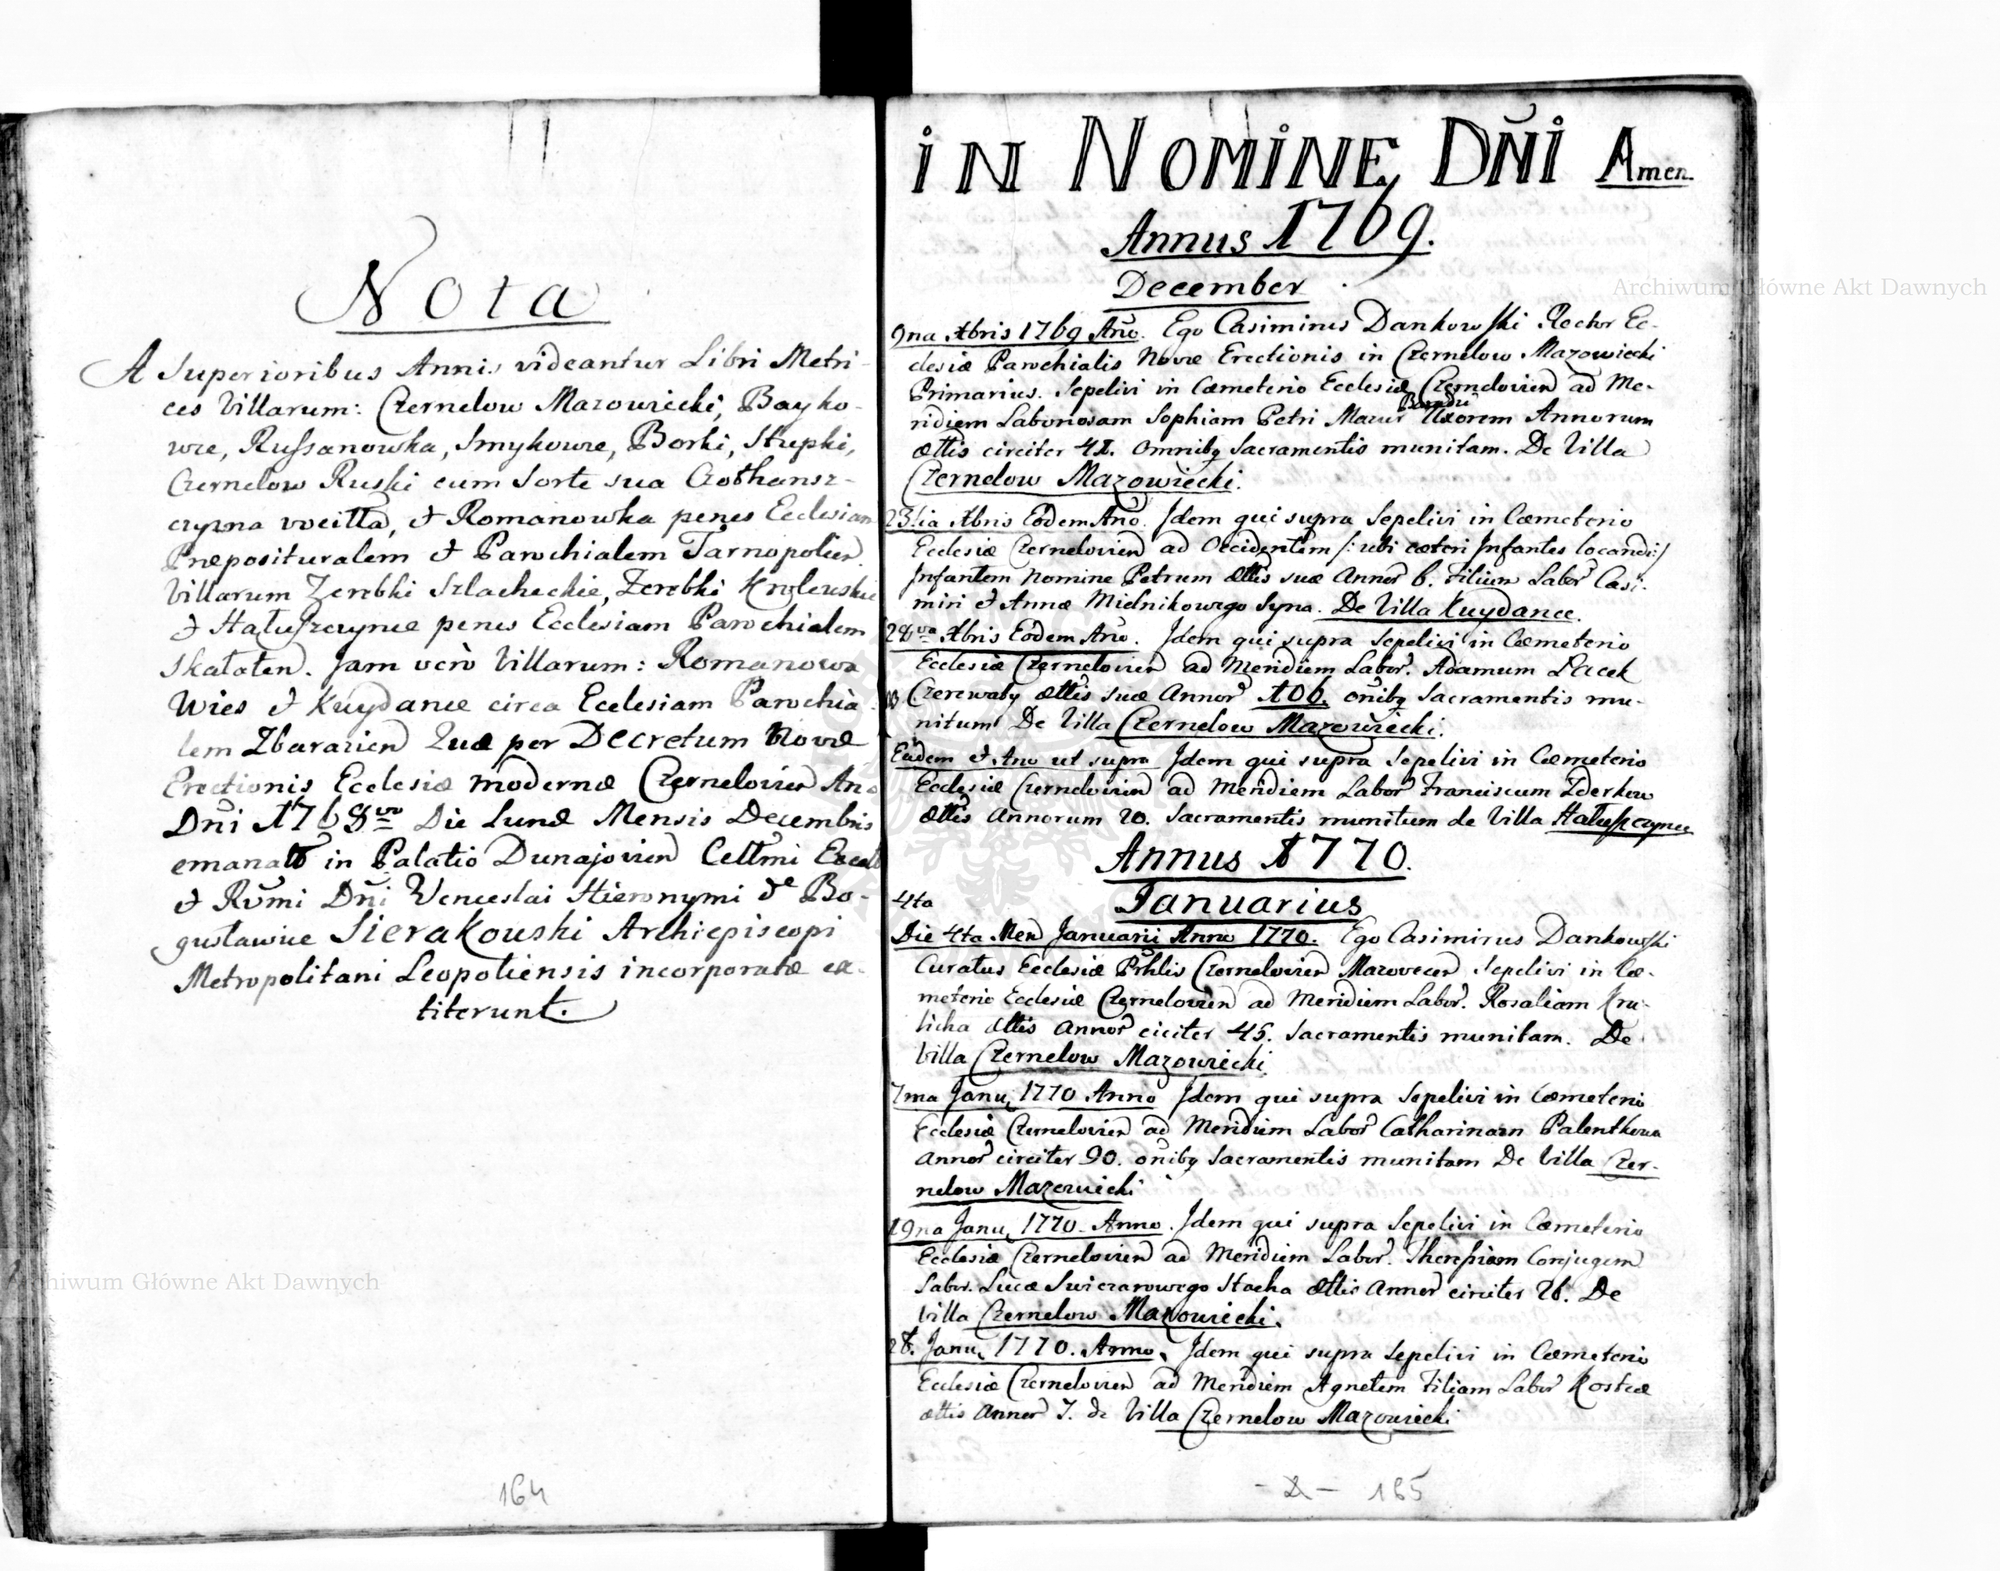 Nota
A Superioribus Annis videantur Libri Metri-
ces Villarum: Czernelow Mazowiecki, Bayko-
wce, Russanowka, Smykowce, Borki, Stupki,
Czernelow Ruski cum Sorte sua
vocitta, & Romanowka penes Ecclesiam
Præposituralem & Parochialem Tarnopolien.
Villarum Zerebki Szlacheckie, Zerebki Krolewskie
& Hałuszczynce penes Ecclesiam Parochialem
Skałaten. Jam verò Villarum: Romanowa
Wies & Kuydance circa Ecclesiam Parochia-
lem Zbarazien Quæ per Decretum Novæ
Erectionis Ecclesiæ modernæ Czernelovien An̄o
Dn̄i 1768vo Die Lunæ Mensis Decembris
emanato in Palatio Dunajovien Celsmi Excell
& Rv̄mi Dn̄i Venceslai Hieronymi de Bo-
gusławice Sierakowski Archiepiscopi
Metropolitani Leopoliensis incorporatæ ex-
titerunt.
164
IN NOMINE DN̄I Amen
Annus 1769.
December
9na Xbris 1769 An̄o. Ego Casimirus Dankowski Rector Ec-
clesiæ Parochialis Novæ Erectionis in Czernelow Mazowiecki
Primarius. Sepelivi in Cœmeterio Ecclesiæ Czernelovien ad Me-
ridiem Laboriosam Sophiam Petri Mazur Uxorem Annorum
ættis circiter 42. omnibq Sacramentis munitam. De Villa
Czernelow Mazowiecki.
23tia Xbris Eodem An̄o. Idem qui supra Sepelivi in Cœmeterio
Ecclesiæ Czernelovien ad Occidentem /: ubi cæteri Infantes locandi :/
Infantem Nomine Petrum ættis suæ Annor 6. Filium Labor Casi-
miri & Annæ Mielnikowego Syna. De Villa Kuydance.
28va Xbris Eodem An̄o. Idem qui supra Sepelivi in Cœmeterio
Ecclesiæ Czernelovien ad Meridiem Labor. Adamum Dacek
Czerewaty ættis suæ Annor 106. on̄ibq Sacramentis mu-
nitum De Villa Czernelow Mazowiecki.
Eadem & Ano ut supra Idem qui supra Sepelivi in Cœmeterio
Ecclesiæ Czernelovien ad Meridiem Labor Franciscum Zderkow
ættis Annorum 20. Sacramentis munitum de Villa Hałuszczynce
Annus 1770.
4ta Januarius
Die 4ta Men Januarii Anno 1770. Ego Casimirus Dankowski
Curatus Ecclesiæ Prhlis Czernelovien Mazovecen Sepelivi in Cœ-
meterio Ecclesiæ Czernelovien ad Meridiem Labor. Rosaliam Kru-
licha ættis Annor ciciter 45. Sacramentis munitam. De
Villa Czernelow Mazowiecki.
7ma Janu, 1770 Anno Idem qui supra Sepelivi in Cœmeterio
Ecclesiæ Czernelovien ad Meridiem Labor Catharinam Palentkowa
Annor circiter 90. on̄ibq Sacramentis munitam De Villa Czer-
nelow Mazowiecki
19na Janu, 1770. Anno. Idem qui supra Sepelivi in Cœmeterio
Ecclesiæ Czernelovien ad Meridiem Labor. Theresiam Conjugem
Labor. Lucæ Swiczarowego Stacha ættis Annor circiter 26. De
Villa Czernelow Mazowiecki.
28. Janu, 1770. Anno, Idem qui supra Sepelivi in Cœmeterio
Ecclesiæ Czernelovien ad Meridiem Agnetem Filiam Labor Kosteæ
ættis Annor 7. de Villa Czernelow Mazowiecki
165
Archiwum Główne Akt Dawnych
Archiwum Główne Akt Dawnych